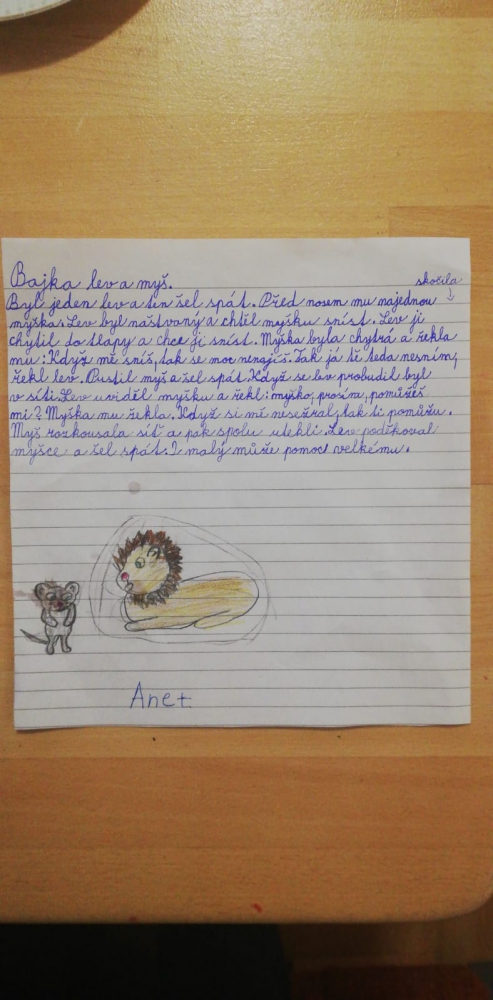 Bajka lev a myš.
skočila
↓
Byl jeden lev a ten šel spát. Před nosem mu najednou
myška. Lev byl naštvaný a chtěl myšku sníst. Lev ji
chytil do tlapy a chce jí sníst. Myška byla chytrá a řekla
mu: Když mě sníš, tak se moc nenajíš. Tak já tě teda nesním,
řekl lev. Pustil myš a šel spát. Když se lev probudil byl
v síti. Lev uviděl myšku a řekl: myško, prosím, pomůžeš
mi? Myška mu řekla. Když si mě nesežral, tak ti pomůžu.
Myš rozkousala síť a pak spolu utehli. Lev poděkoval
myšce a šel spát. I malý může pomoct velkému.
Anet